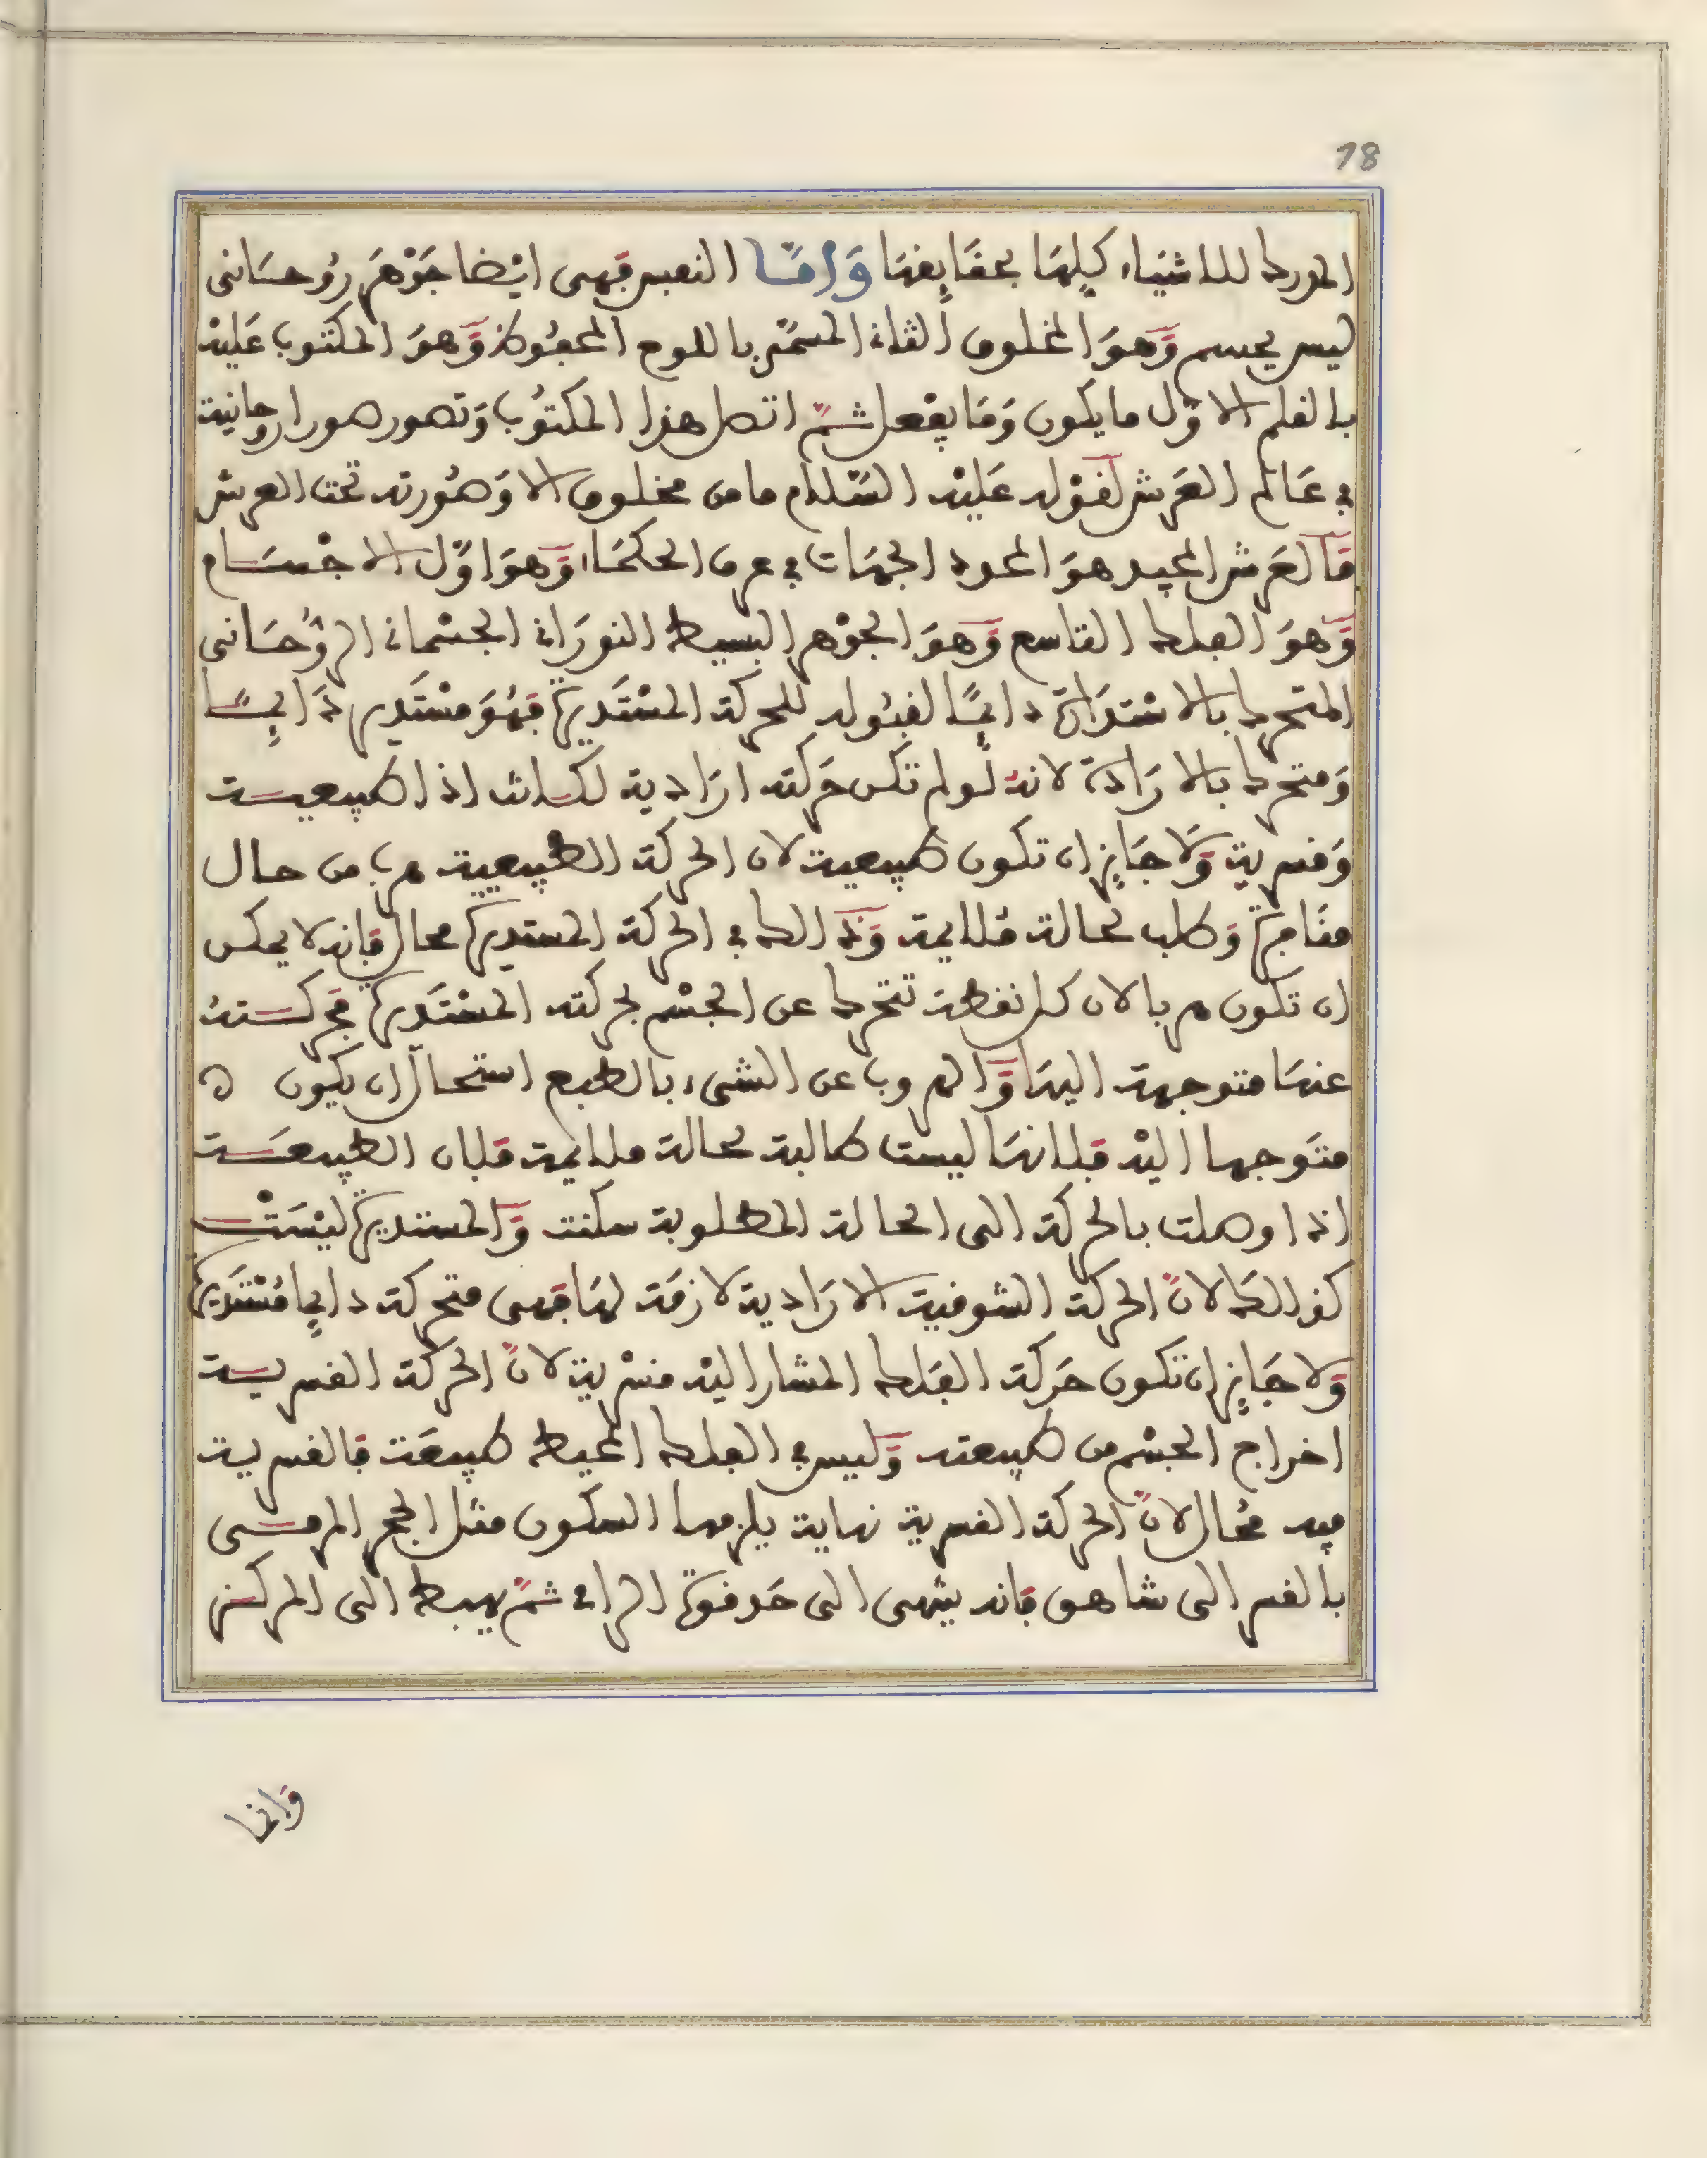 18
المدرك للاشياء كلها بحقايقها وَامَّا النفس فهى ايْضا جَوْهَر رُوحسَانى
ليس بجسم وَهوَ المخلوق الثانى المسمّى باللوح المحفُوظ وَهوَ المكتوب عَليْه
بالقلم الاوّل ما يكون وَمَا يفْعل ثمّ اتصل هذا المكتُوب وَتصور صورا روحانية
في عَالم العَرش لقوْله عَليْه السّلام ما من مخلوق الا وَصُورته تحت العرش
فَالعَرش المجيد هوَ المحدد الجهَات في عرف الحكمَاء وَهوَ اوّل الاجْسَام
وَهوَ الفلك التاسع وَهوَ الجوْهر البسيط النورَانى الجسْمانى الرُّوحَسانى
المتحرك بالاسْتدَارة دايمًا لقبُوله للحركة المسْتَديرة فهُوَ مسْتَدير دَايمًا
وَمتحرك بالارَادَة لانه لَو لم تكن حَركته ارَادية لكانت اذا طبيعيسة
وَقسرية وَلَا جَايز ان تكون طبيعية لان الحركة الطبيعية هرب من حال
منَافرة وَطلب لحالة مُلايمة وَذَالك في الحركة المستديرة محال فانه لا يمكن
ان تكون هربا لان كل نقطة تتحرك عن الجسْم بحركته المسْتَديرة فحركسته
عنهَا متوجهة اليهَا وَالهروب عن الشىء بالطبع استحال ان يكون ه
متَوجها اليْه فلانهَا ليست طالبة لحالة ملايمة فلان الطبيعسَة
اذا وصلت بالحركة الى الحالة المطلوبة سكنت وَالمستديرة ليْسَتْ
كذالك لانّ الحركة الشوقية الارَادية لازمَة لهَا فهى متحركة دايما مُسْتَديرة
وَلا جَايز ان تكون حَركة الفَلك المشار اليْه قسْرية لانّ الحركَة القسريسة
اخراج الجسْم من طبيعته وَليس في الفلك المحيط طبيعَة فالقسرية
فيه مُحال لانّ الحركة القسرية نهاية يلزمها السكون مثل الحجر المرمسى
بالقسر الى شاهق فانه ينتهى الى حَد قوة الرامى ثمّ يهبط الى المركسز
وَانما